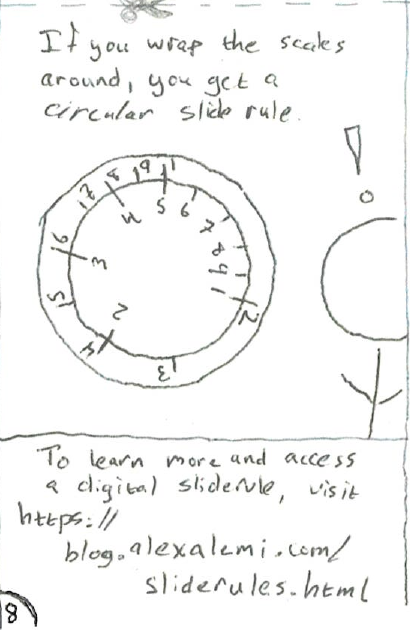 If you wrap the scales
around, you get a
circular slide rule.
!
1 2 3 4 5 6 7 8 9
1 2 3 4 5 6 7 8 9
To learn more and access
a digital sliderule, visit
https://
blog.alexalemi.com/
sliderules.html
8